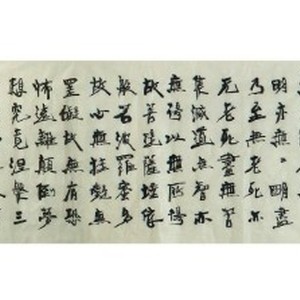 明亦無〻明盡
乃至無老死亦
无老死盡無苦
集滅道無智亦
無得以無所得
故菩提薩埵依
般若波羅蜜多
故心無挂礙無
罣礙故無有恐
怖遠離顛倒夢
想究竟涅槃三